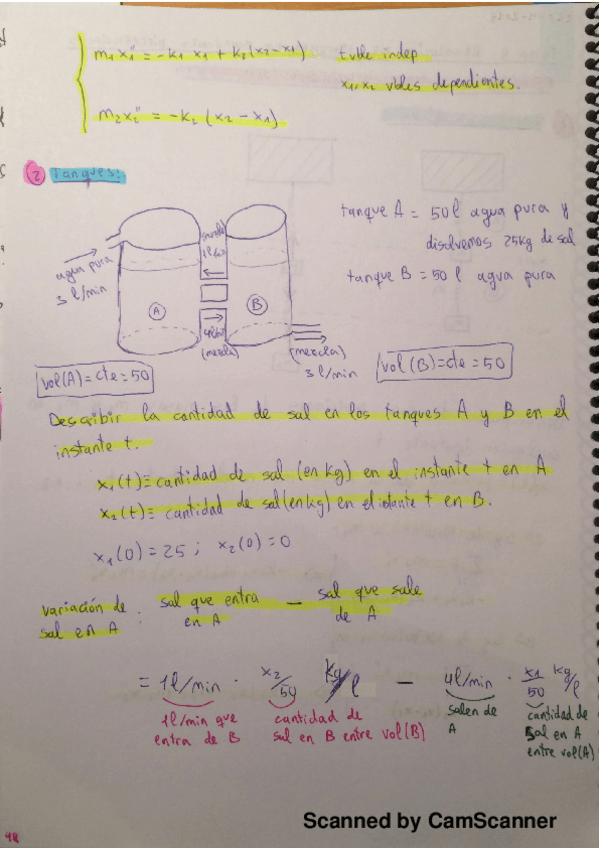 m₁x₁'' = -k₁ x₁ + k₂(x₂-x₁)
t vble indep
x₁, x₂ vbles dependientes.
m₂x₂'' = -k₂ (x₂-x₁)
② Tanques:
agua pura
3 l/min
A
B
4l/min
(mezcla)
(mezcla)
3 l/min
tanque A = 50 l agua pura y
disolvemos 25kg de sal
tanque B = 50 l agua pura
vol(A) = cte = 50
vol(B) = cte = 50
Describir la cantidad de sal en los tanques A y B en el
instante t.
x₁(t) = cantidad de sal (en kg) en el instante t en A
x₂(t) = cantidad de sal (en kg) en el instante t en B.
x₁(0) = 25 ; x₂(0) = 0
variación de sal en A : sal que entra en A — sal que sale de A
= 1 l/min · x₂/50 kg/l — 4 l/min · x₁/50 kg/l
1 l/min que
entra de B
cantidad de
sal en B entre vol(B)
salen de
A
cantidad de
sal en A
entre vol(A)
Scanned by CamScanner